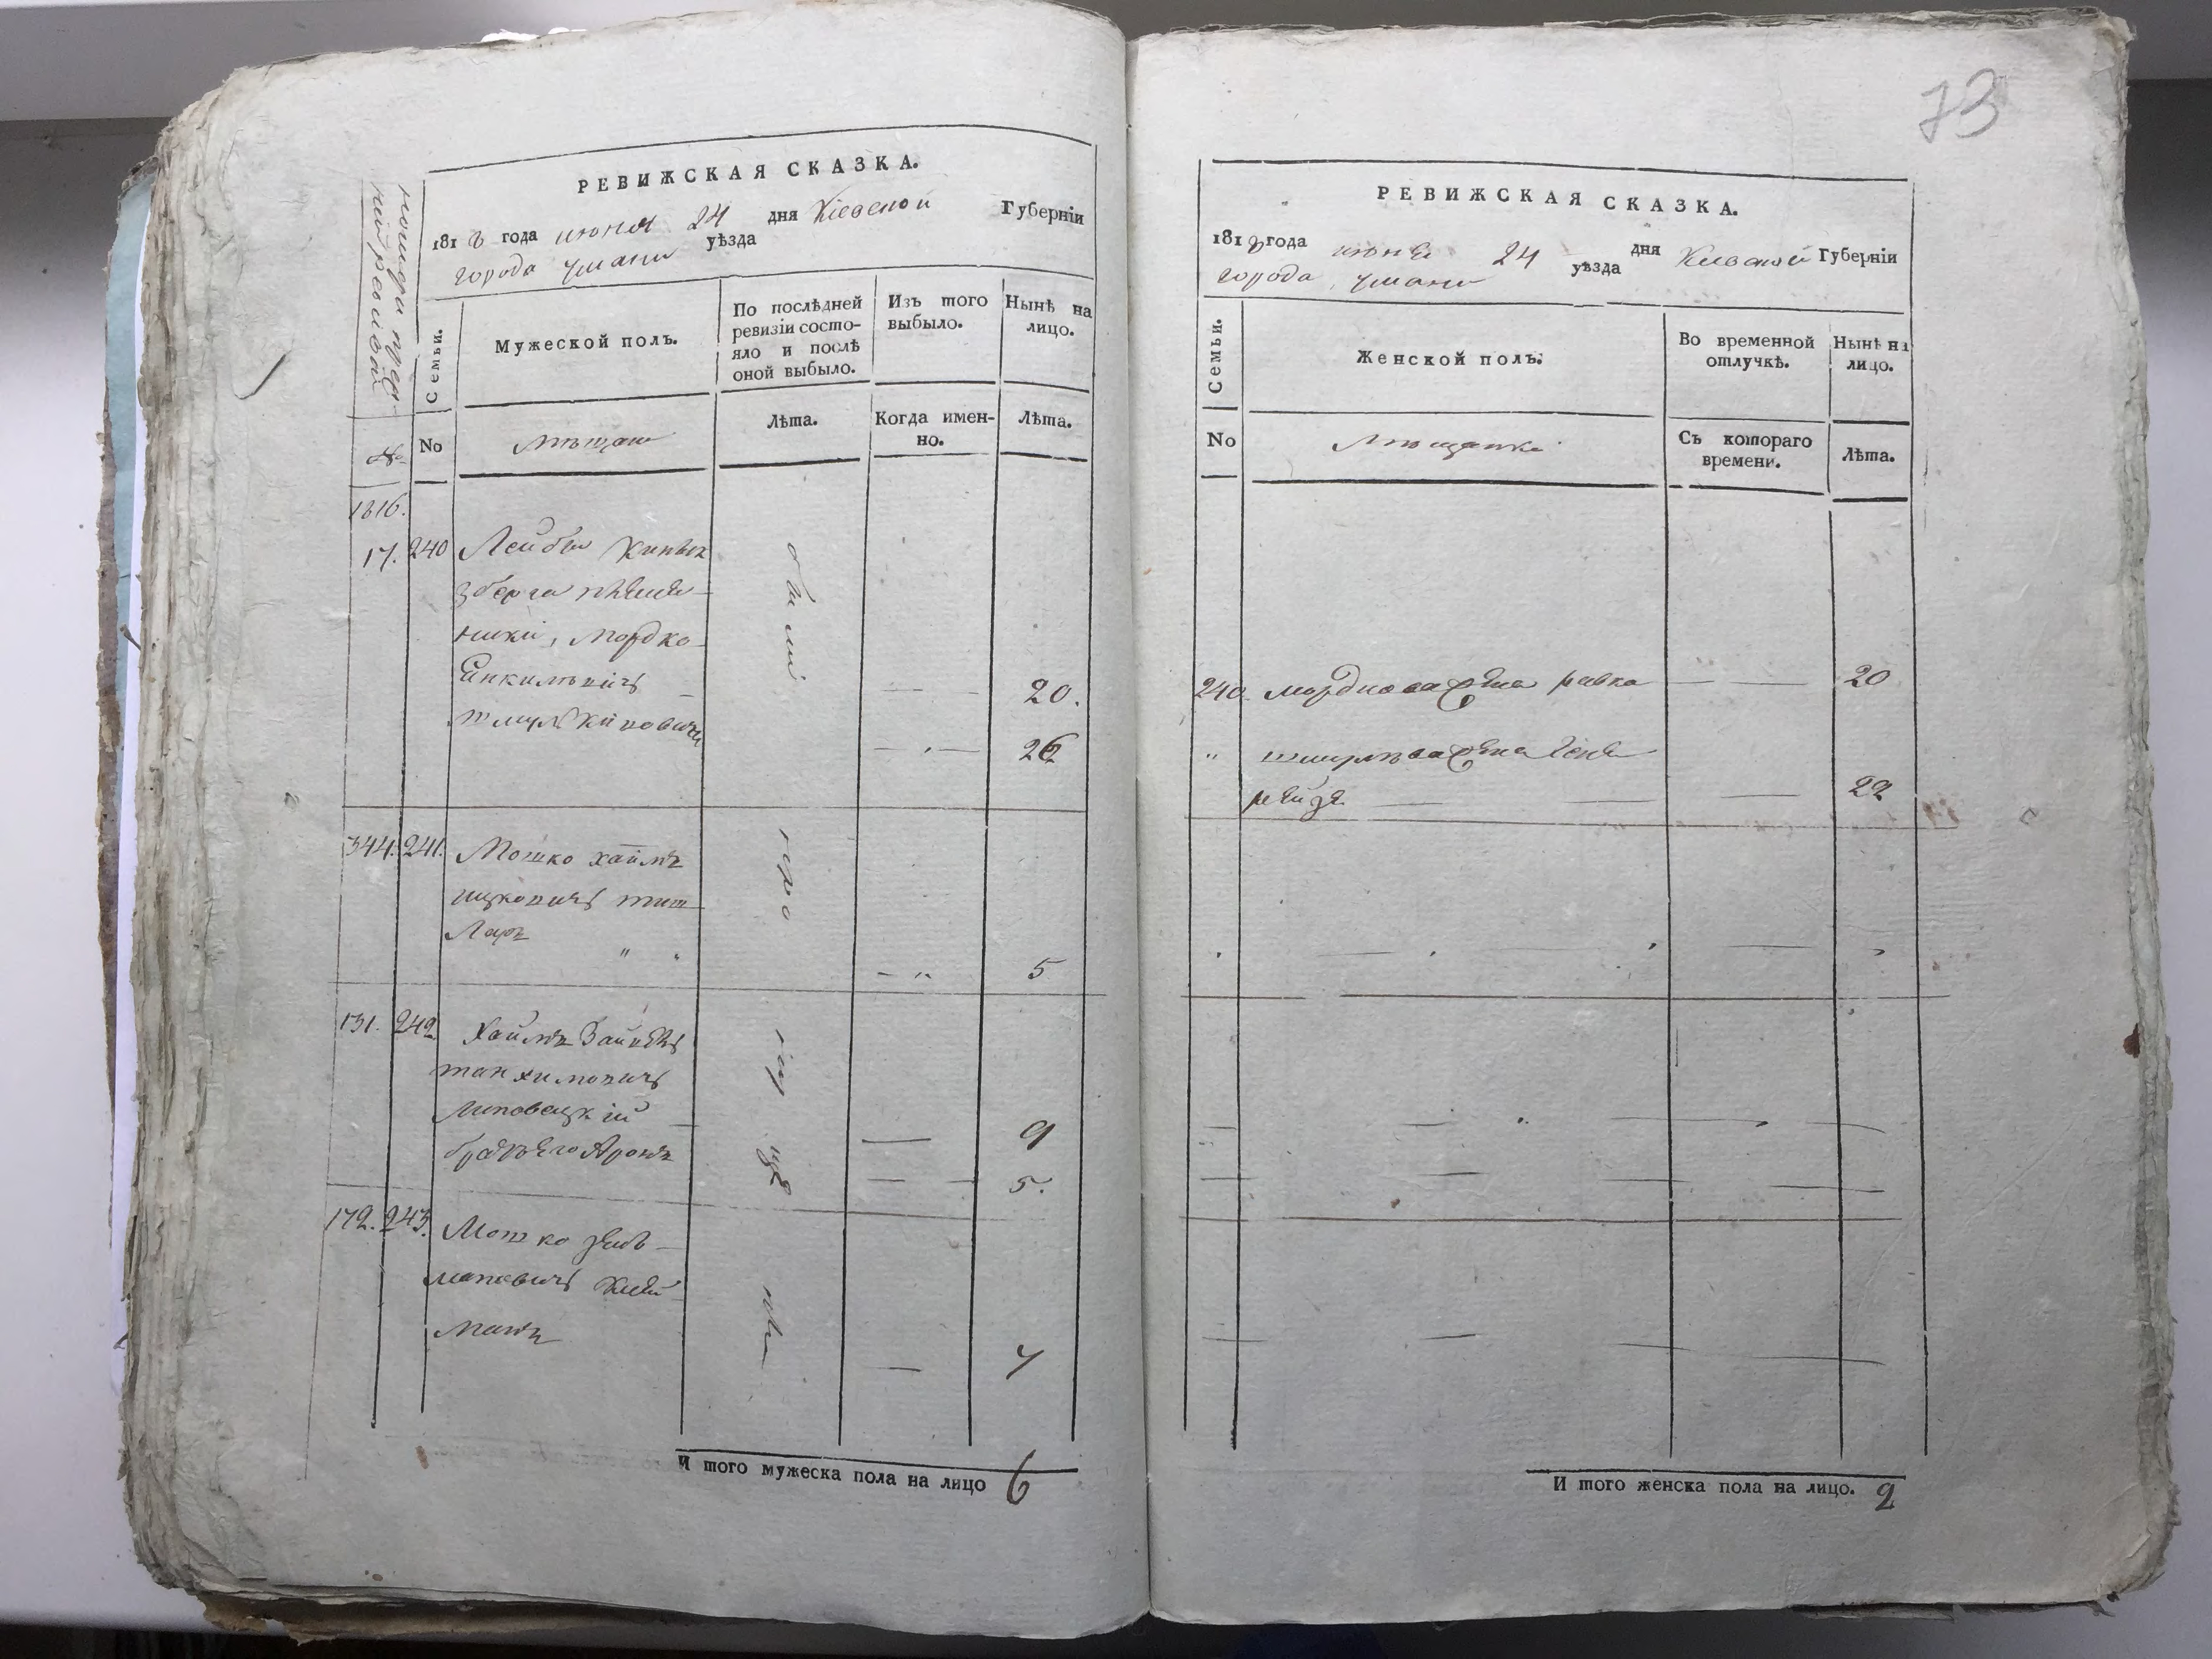 73
номери пред-
ней ревизіи
РЕВИЖСКАЯ СКАЗКА.
1818 года июня 24 дня Кіевской Губерніи
города Умани уѣзда
Семьи.
Мужеской полъ.
По послѣдней
ревизіи состо-
яло и послѣ
оной выбыло.
Изъ того
выбыло.
Нынѣ на
лицо.
№
No
Мѣщане
Лѣта.
Когда имен-
но.
Лѣта.
1816.
17. 240 Лейбы
зберга племя-
ники, Мордко
Янкилевичъ 20.
Шмуль 26
344. 241. Мошко Хаимъ
Ицковичъ
5
131. 242. Хаимъ
Танхимовичъ
Липовецкій 9
братъ его Аронъ 5.
172. 243. Мошко Зель-
мановичъ
манъ
7
И того мужеска пола на лицо 6
РЕВИЖСКАЯ СКАЗКА.
1818 года июня 24 дня Киевской Губерніи
города Умани уѣзда
Семьи.
Женской полъ.
Во временной
отлучкѣ.
Нынѣ на
лицо.
No
Мѣщанки
Съ котораго
времени.
Лѣта.
240 Мордкова жена Ривка 20
" Шмулева жена
Рейзя 22
И того женска пола на лицо. 2